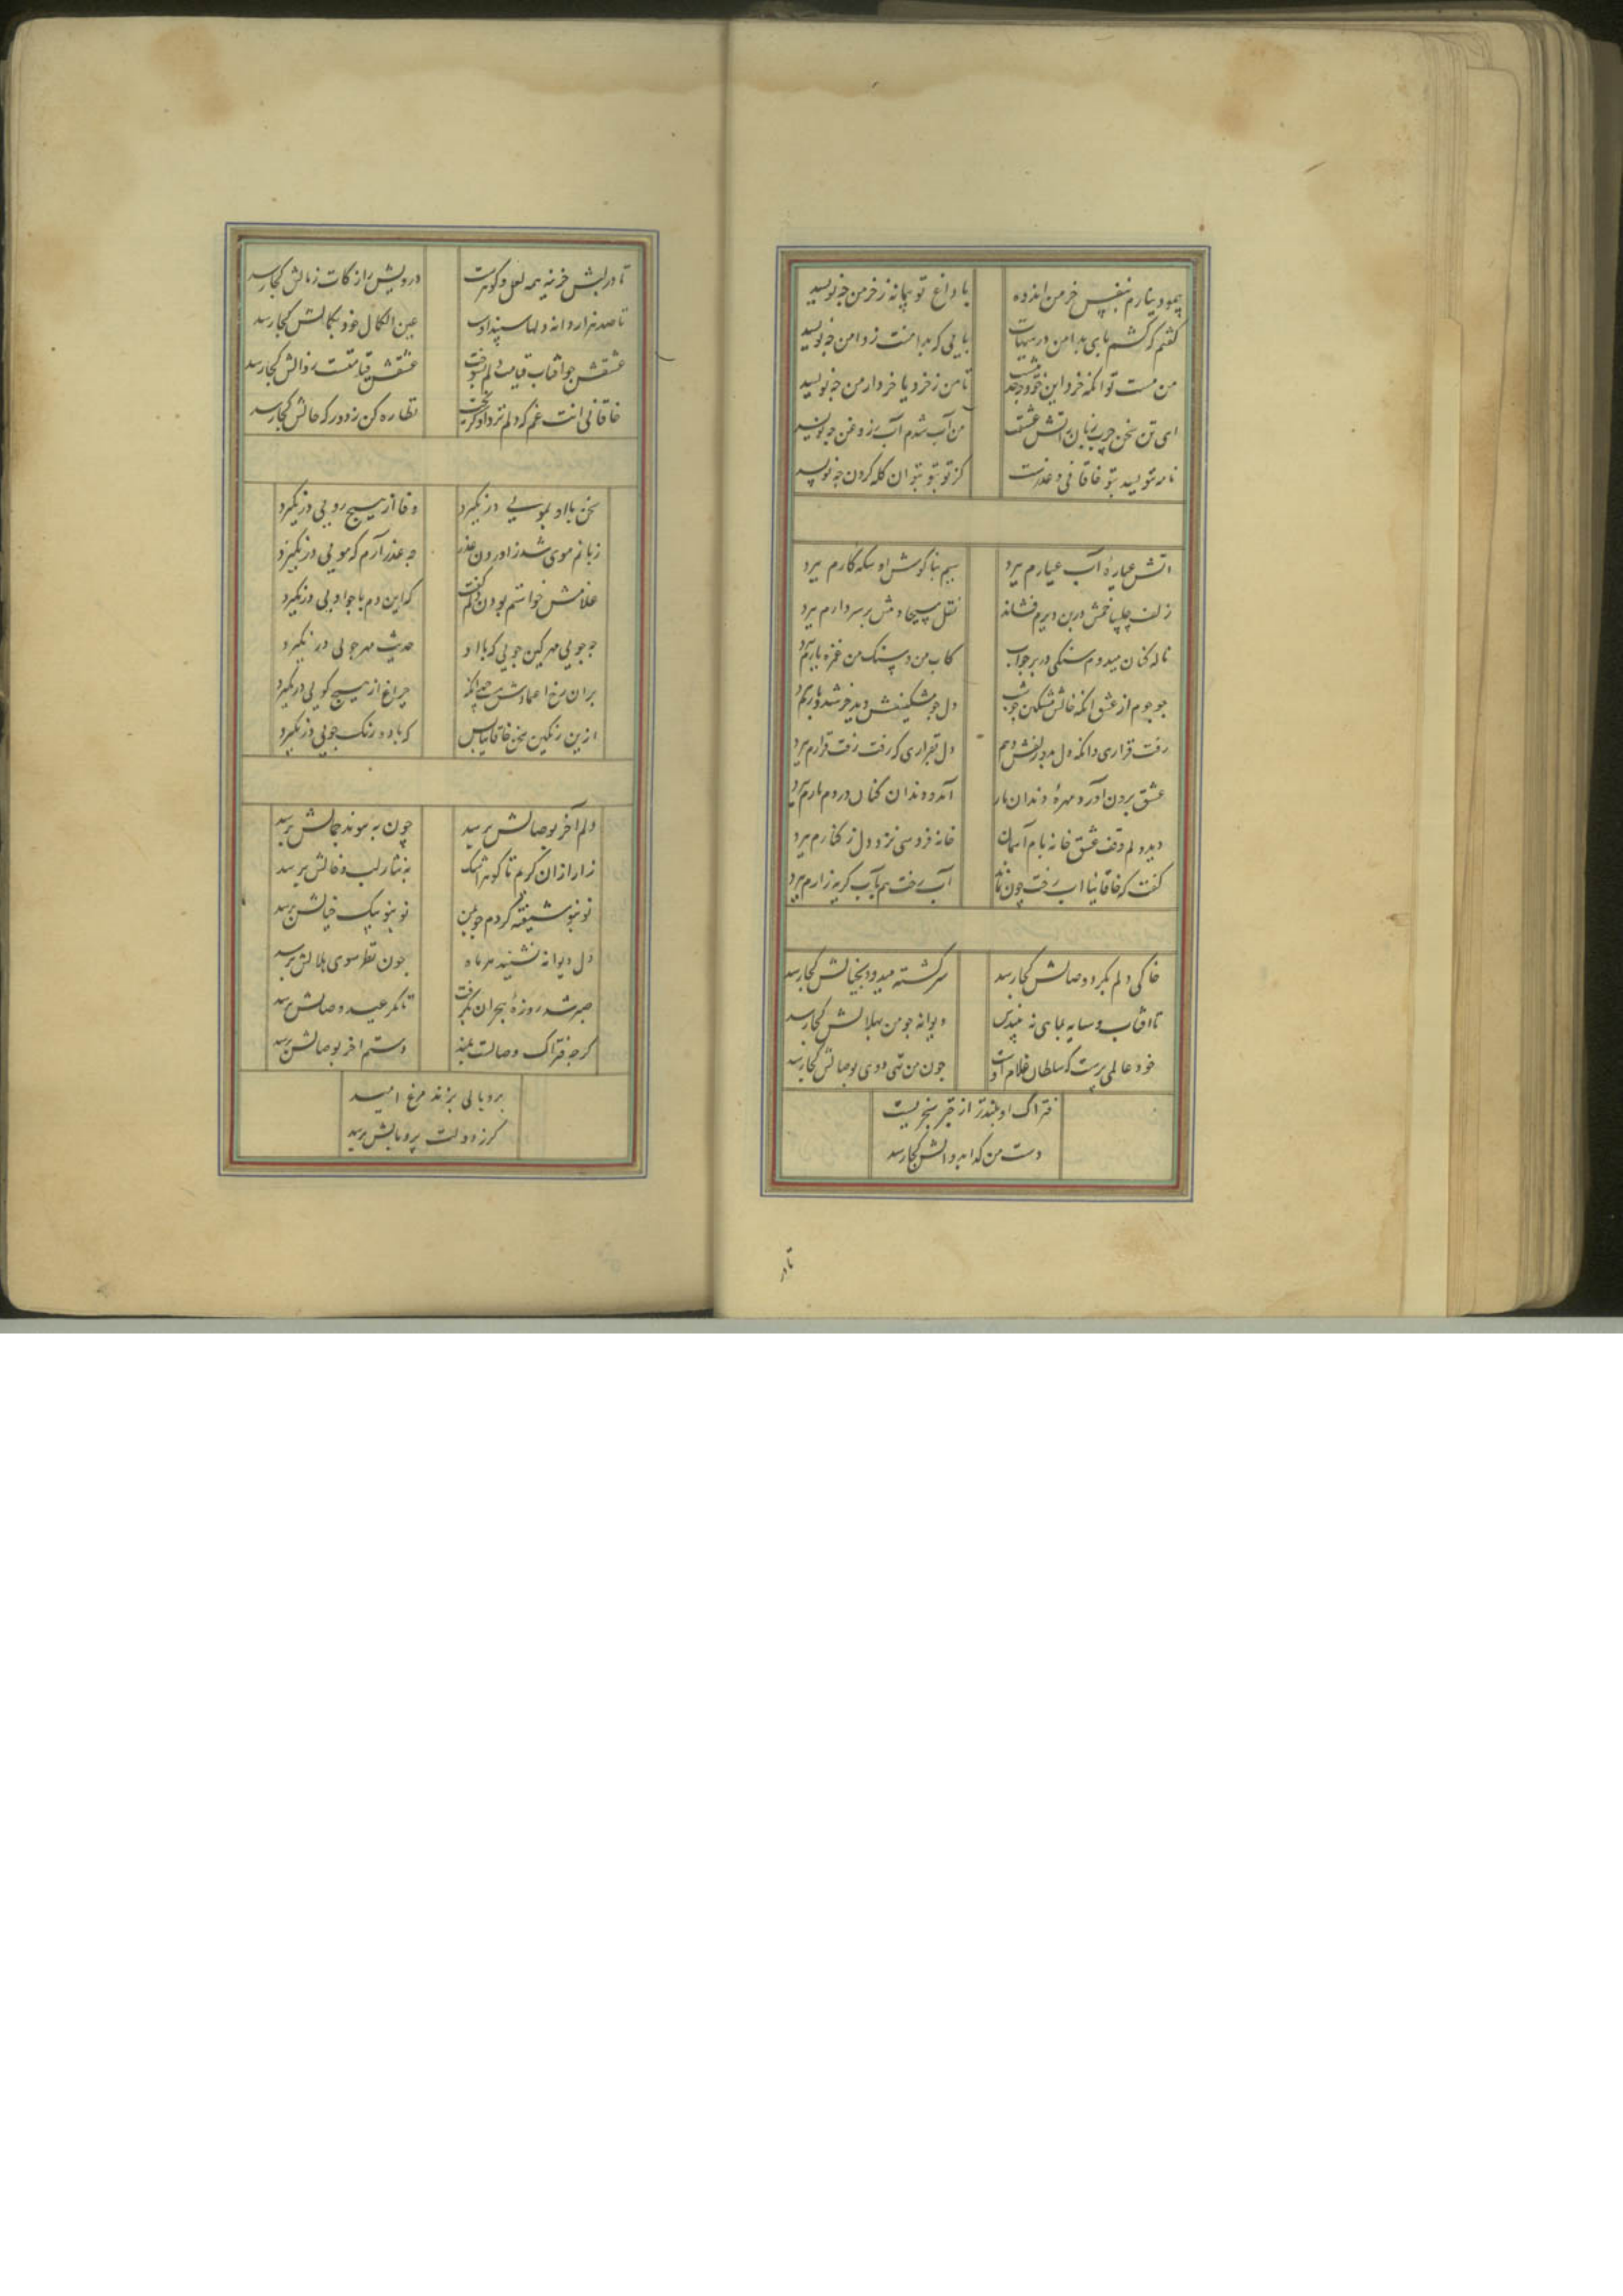 پیمود بنارم نفس خرمن اندوه با داغ تو پیمانه ز خرمن چه نویسید
گفتم که کشم پای بدامن در هیهات پایی که بدامنت ز دامن چه نویسید
من مست تو انگه خرد این خود چه حدیثست تا من ز خرد یا خرد از من چه نویسید
ای تن سخن چرب زبان ز اتش عشقت من آب شدم آب ز روغن چه نویسید
نامه نویسد بتو خاقانی و عذرست کز تو بتو بتوان گله کردن چه نویسد
اتش عیاره آب عیارم ببرد سیم بناکوش او سکه کارم ببرد
زلف چلیپا خمش در بن دیرم نشاند نقل مسیحا دمش بر سر دارم ببرد
ناله کنان میدوم سنگی در بر جواب کاب من و سنک من غمزه یارم ببرد
جو جوم از عشق انکه خالش مشکین جوست دل جو مشکینش دید خر شد و بارم ببرد
رفت قراری دانکه دل بدو زلفش دهم دل بقراری که رفت رفت قرارم ببرد
عشق برون آورد مهره دندان مار آمد و دندان کنان در دم مارم ببرد
دید دلم وقف عشق خانه بام آسمان خانه فروشی نزد دل ز کنارم ببرد
گفت که خاقانیا اب رخت چون نماند آب رخت هم بآب کریه زارم ببرد
خاکی دلم بکرد وصالش کجا رسد سرکشته میدود بخیالش کجا رسد
تا افتاب و سایه بجای نه میدرس دیوانه جو من بهلالش کجا رسد
خود عالمی پرست که سلطان غلام اوست چون من تهی دوی بوصالش کجا رسد
فتراک او بلندتر از چتر سنجریست
دست من کدا بدوالش کجا رسد
تادر
تا در لبش خزینه همه لعل و کوهرست درویش را ز کات ز مالش کجا رسد
تا صد هزار دانه دلها سپند اوست عین الکمال خود بکمالش کجا رسد
عشقش جو افتاب قیامت دلم بسوخت عشقش قیامتست زوالش کجا رسد
خاقانی انت غم که دلم نزد او گریخت نظاره کن ز دور که حالش کجا رسد
سخن با او بمویی در نکیرد وفا از هیچ رویی در نکیرد
زبانم موی شد ز اوردن عذر چه عذر آرم که مویی در نکیرد
غلامش خواستم بودن دلم گفت که این دم با چو اویی در نکیرد
چه جویی مهر کین جویی که با او حدیث مهرجویی در نکیرد
بران رخ اعتمادش هست چندانکه چراغ از هیچ کویی در نکیرد
ازین رنکین سخن خاقانیا بس که با او رنک جویی در نکیرد
دلم آخر بوصالش برسد چون به پیوند جمالش برسد
زار ازان کریم تا کوهر اشک به نثار لب و خالش برسد
نو بنو شیفته کردم چو بمن نو بنو پیک خیالش برسد
دل دیوانه نشیند هر ماه چون نظر سوی هلالش برسد
صبر شد روزه هجران بگرفت تا مکر عید وصالش برسد
کرچه فتراک وصالت بلند دستم اخر بوصالش برسد
پر و بالی بزند مرغ امید
کز دولت پر و بالش برسد